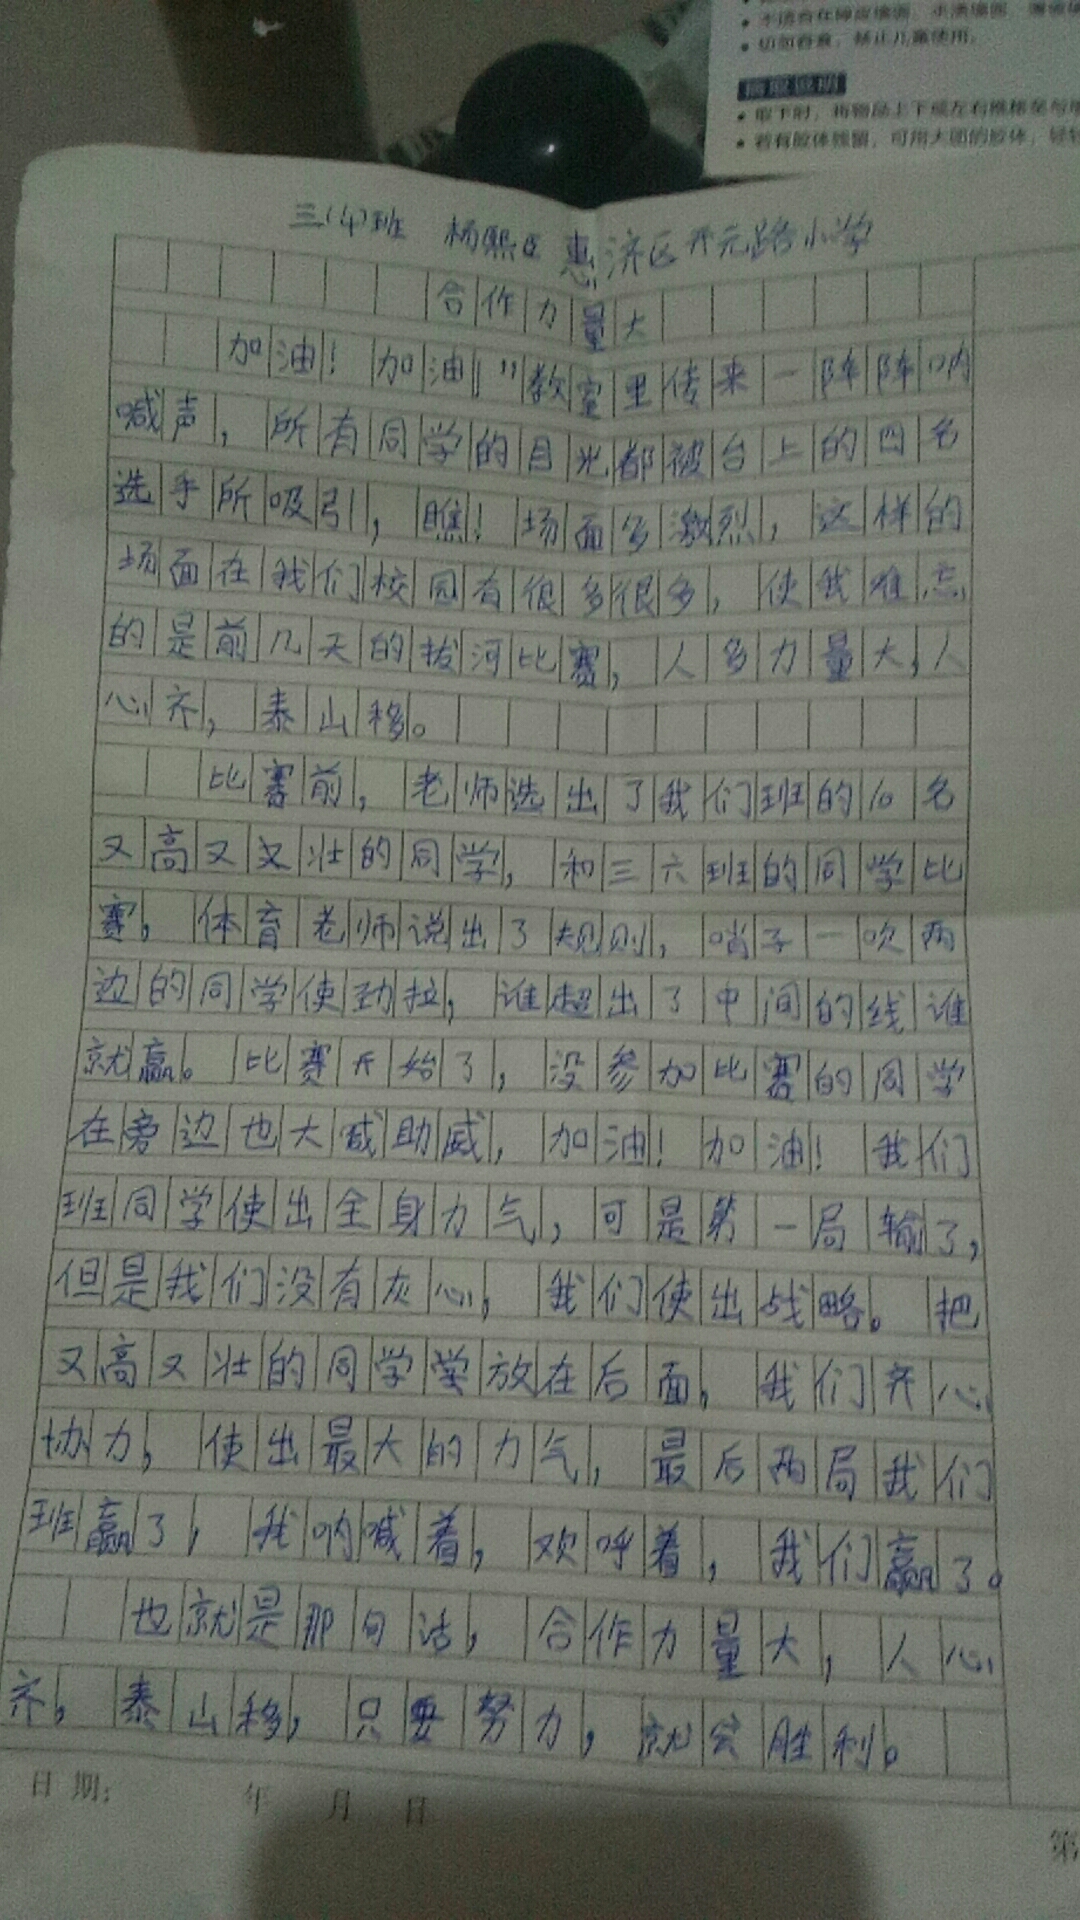 • 切勿吞食，禁止儿童使用。
• 取下时，将物品上下或左右推移至与
• 若有胶体残留，可用大团的胶体，轻轻
三(4)班 杨熙 惠济区开元路小学
合作力量大
加油！加油！”教室里传来一阵阵呐
喊声，所有同学的目光都被台上的四名
选手所吸引，瞧！场面多激烈，这样的
场面在我们校园有很多很多，使我难忘
的是前几天的拔河比赛，人多力量大，人
心齐，泰山移。
比赛前，老师选出了我们班的10名
又高又又壮的同学，和三六班的同学比
赛，体育老师说出了规则，哨子一吹两
边的同学使劲拉，谁超出了中间的线谁
就赢。比赛开始了，没参加比赛的同学
在旁边也大喊助威，加油！加油！我们
班同学使出全身力气，可是第一局输了，
但是我们没有灰心，我们使出战略。把
又高又壮的同学学放在后面，我们齐心
协力，使出最大的力气，最后两局我们
班赢了，我呐喊着，欢呼着，我们赢了。
也就是那句话，合作力量大，人心
齐，泰山移，只要努力，就会胜利。
日期： 年 月 日
第